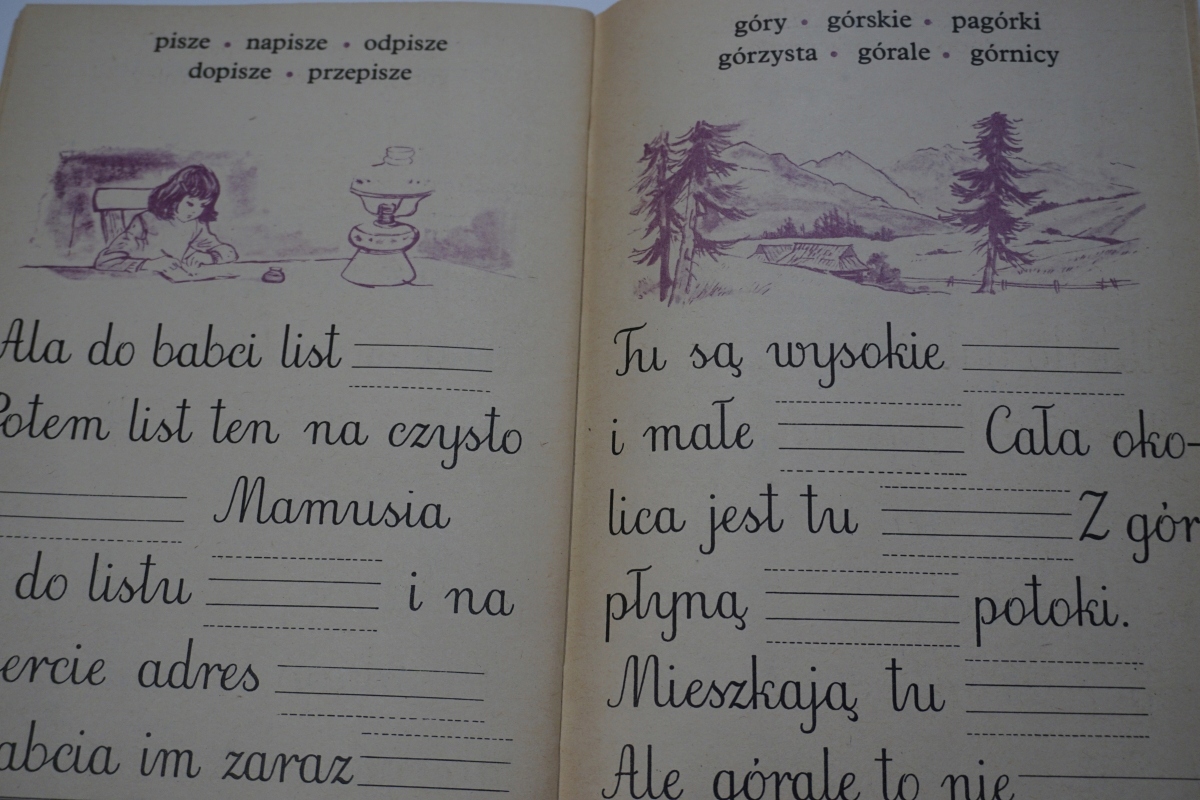 pisze • napisze • odpisze
dopisze • przepisze
Ala do babci list
Potem list ten na czysto
Mamusia
do listu i na
ercie adres
abcia im zaraz
góry • górskie • pagórki
górzysta • górale • górnicy
Tu są wysokie
i małe Cała oko-
lica jest tu Z gór
płyną potoki.
Mieszkają tu
Ale górale to nie